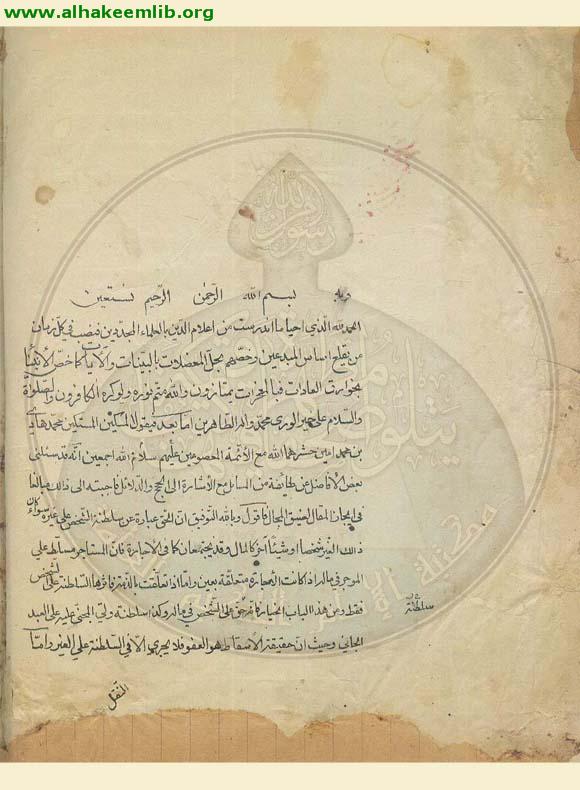 www.alhakeemlib.org
وبه بسم الله الرّحمٰن الرّحيم نستعين
الحمد لله الّذي احيا ما اندرست من اعلام الدين بالعلماء المجدّدين فنصب في كلّ زمان
من يقلع اساس المبدعين وخصّهم بحلّ المعضلات بالبينات والآيات كما خصّ الأنبيآء
بخوارق العادات فبالمعجزات يمتازون والله متمّ نوره ولو كره الكافرون والصلوٰة
والسلام على خير الورى محمّد وآله الطّاهرين امّا بعد فيقول المسكين المستكين محمّد هادي
بن محمّد امين حشرهما الله مع الأئمّة المعصومين عليهم سلام الله اجمعين انّه قد سئلني
بعض الأفاضل عن طائفة من المسايل مع الأشارة الى الحجج والدلائل فاجبته الى ذالك مبالغا
في ايجاز المقال لضيق المجال فاقول وبالله التوفيق انّ الحقّ عبارة عن سلطنة الشّخص على غيره سواء كان
ذالك الغير شخصاً او شيئاً آخر كالمال وقد يجتمعان كما في الاجارة فانّ المستاجر مسلّط على
الموجر في ماله اذا كانت الاجارة متعلّقة بعين وامّا اذا تعلّقت بالذمّة فاثرها السّلطنة على الشّخص
فقط ومن هذا الباب الخيار كما هو حقّ على الشّخص في ماله وكذا سلطنة وليّ المجنى عليه على العبد
الجاني وحيث انّ حقيقة الأسقاط هو العفو فلا يجري الّا في السّلطنة على الغير وامّا
سلطنة
النّقل
رسول الله